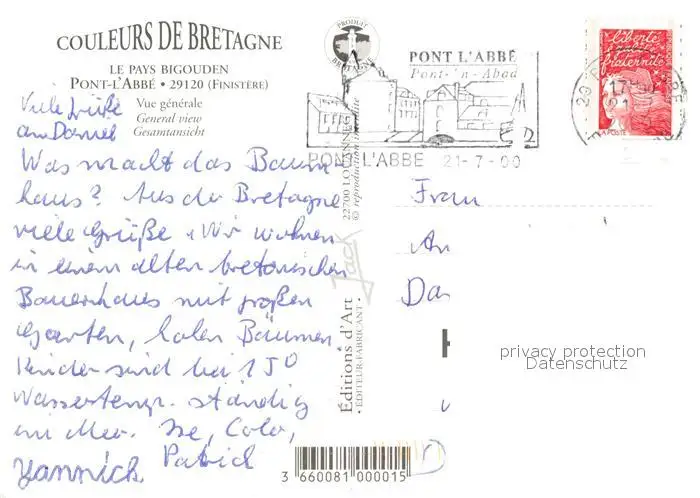 COULEURS DE BRETAGNE
LE PAYS BIGOUDEN
PONT-L'ABBÉ • 29120 (FINISTÈRE)
Vue générale
General view
Gesamtansicht
Viele Grüße
an Daniel
Was macht das Baum-
haus? Aus der Bretagne
viele Grüße. Wir wohnen
in einem alten bretonischen
Bauernhaus mit großen
Garten, hohen Bäumen.
Kinder sind bei 15°
Wassertemp. ständig
im Meer. Ise, Colo,
Yannick Patrick
PRODUIT
BRETAGNE
PONT L'ABBÉ
Pont-'n-Abad
PONT L'ABBE 21-7-00
liberté
égalité
fraternité
LA POSTE
22700 LOUANNEC
© reproduction interdite
Jack
Éditions d'Art
• ÉDITEUR-FABRICANT •
Frau
An
Da
3 660081 000015
privacy protection
Datenschutz